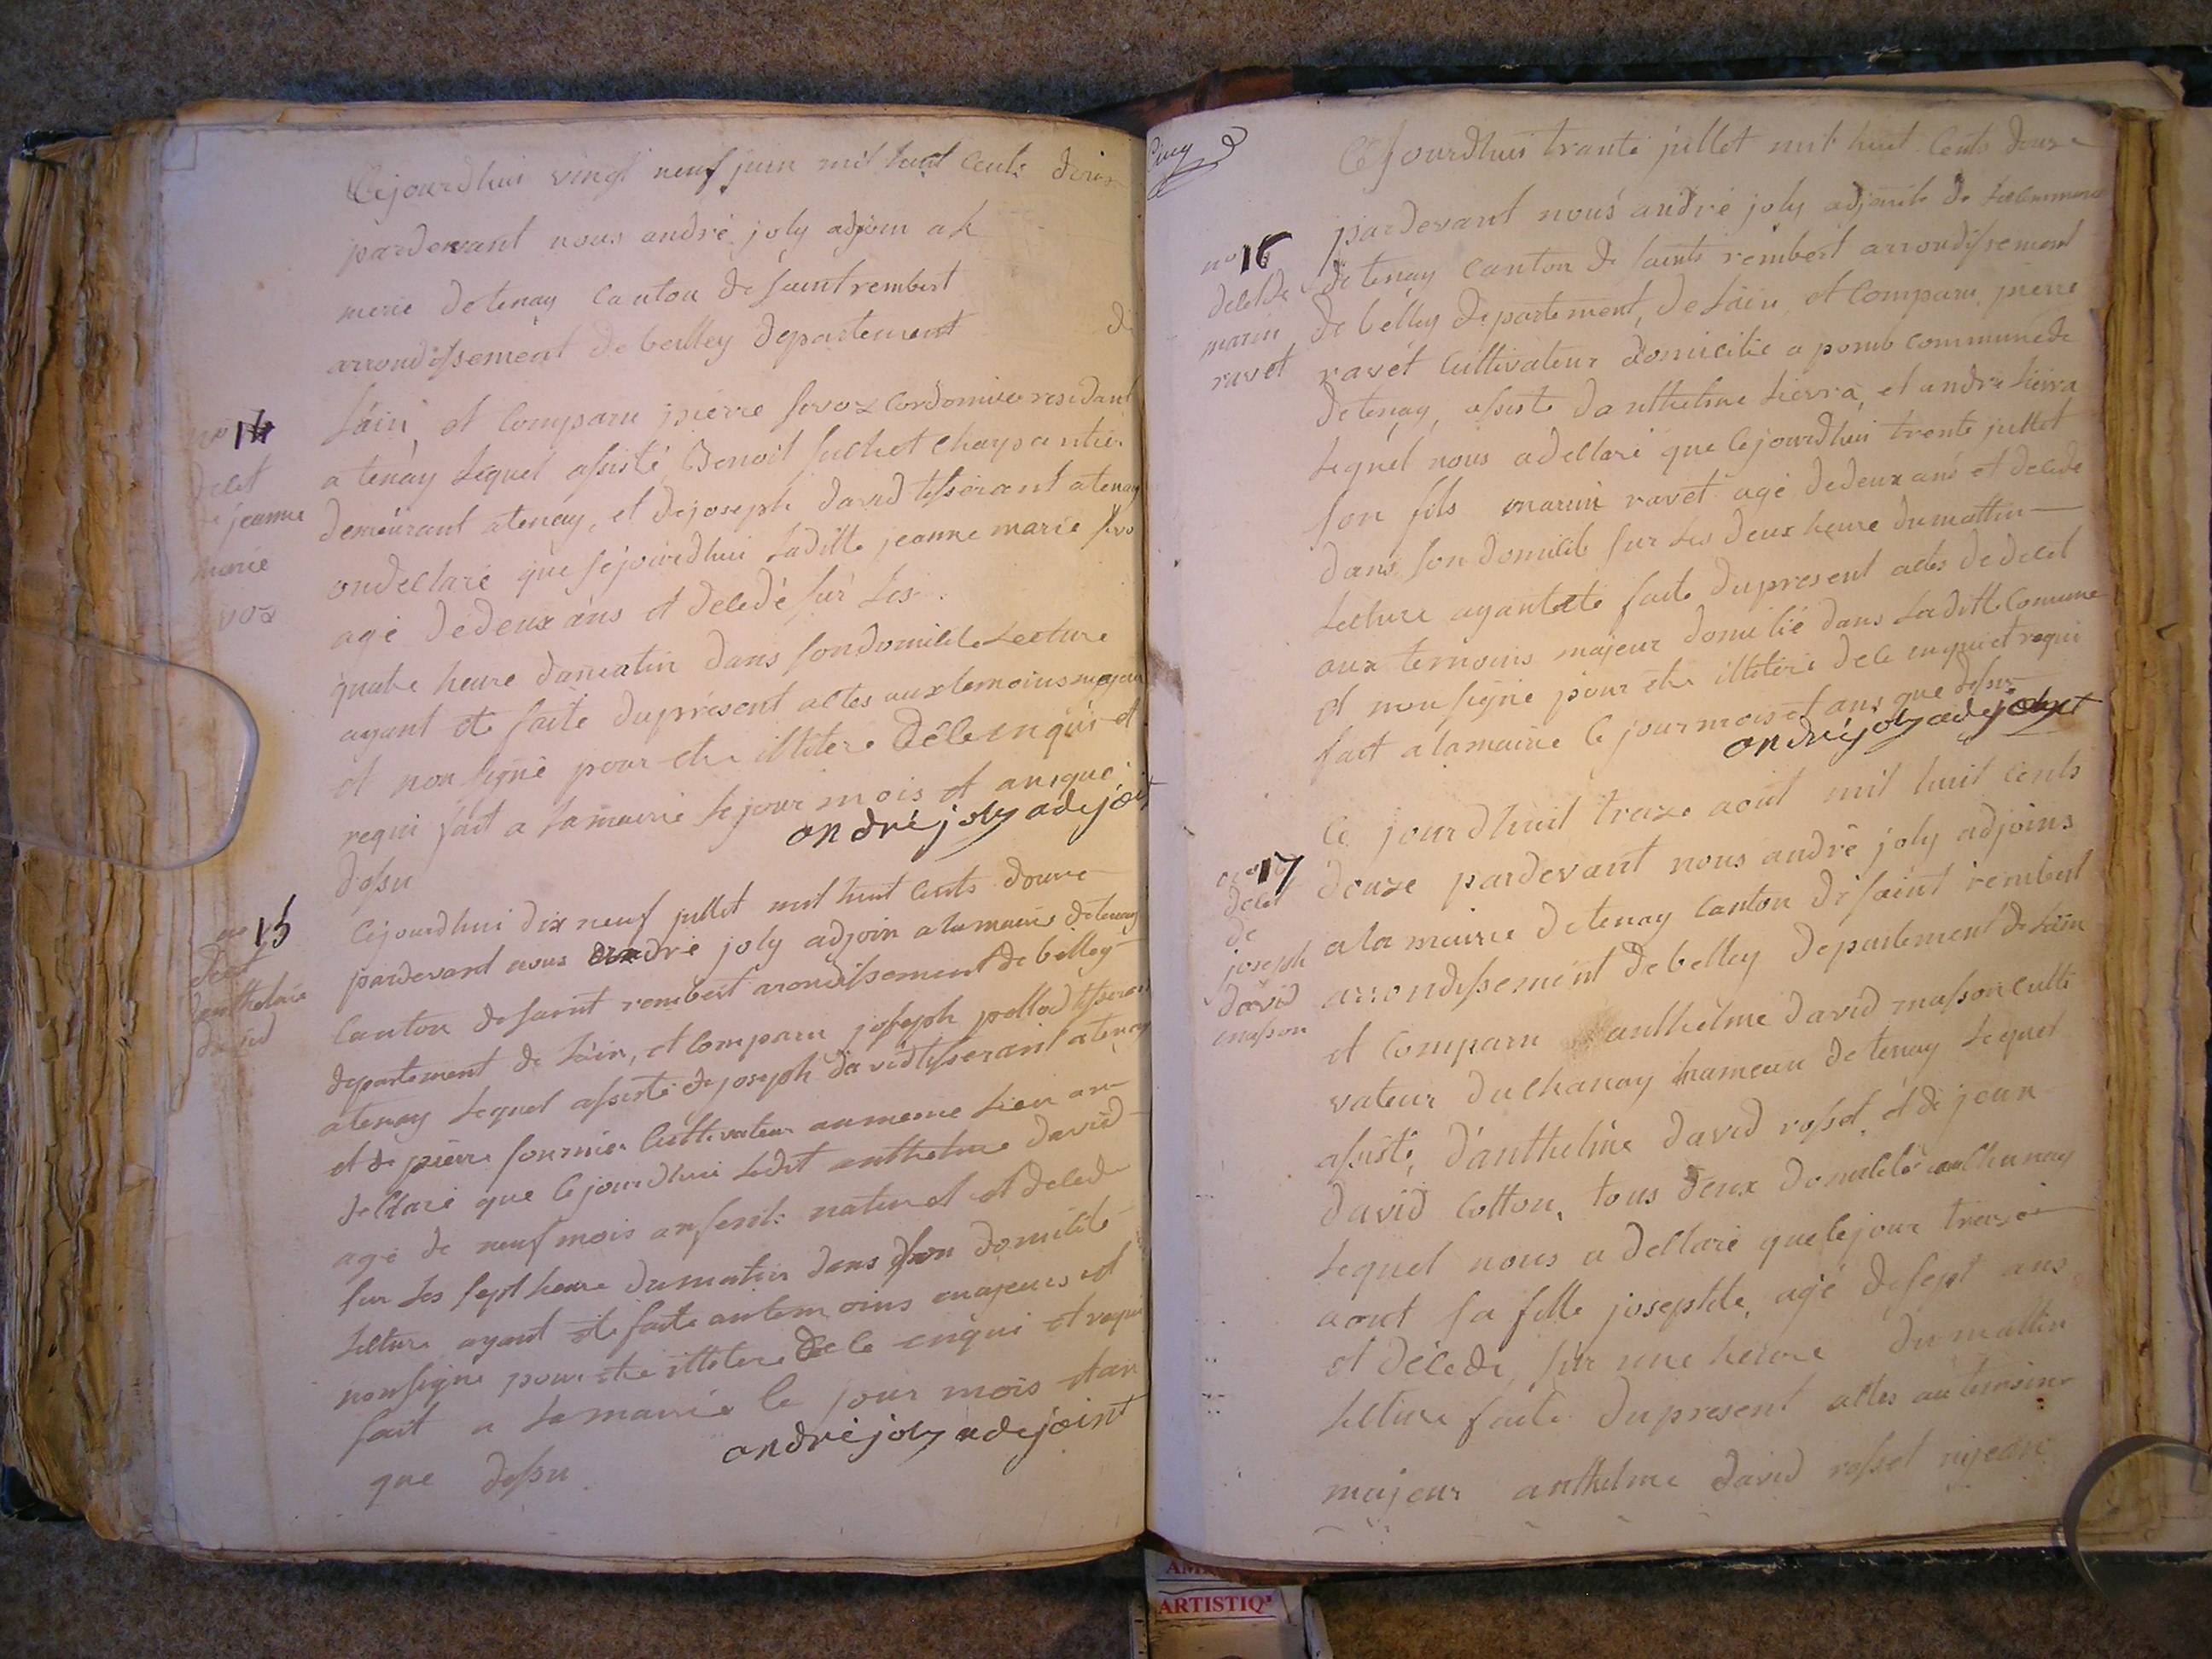 Cejourdhui vingt neuf juin mil huit Cents douze
pardevant nous andré joly adjoin a la
merie detenay Canton de saint rembert
arrondissement de belley departement de
Lain et Comparu pierre sevoz Cordonnier residant
a tenay Lequel assisté Benoit suchet Charpantier
demeurant atenay, et dejoseph david tisserant atenay
ondeclaré que sejourdhui Laditte jeanne marie sevo
agé dedeux ans et decedé sur Les
quatre heure dumatin dans sondomicile Lecture
ayant ete faite duprésent actes auxtemoins majeur
et non signé pour etre illitere de ce enquis et
requi fait a Lamairie Lejour mois et anque
dessu
andré joly adejoit
no 14
decet
de jeanne
marie
voz
Cejourdhui dix neuf jullet mil huit Cents douze
pardevant nous andré joly adjoin alamairie detenay
Canton desaint rembert arondissement de belley
departement de Lain, et Comparu joseph
atenay Lequel assisté dejoseph david tisserant atenay
et de pierre fournier Cultivateur aumeme Lieu an
declaré que Cejourdhui Ledit anthelme david
agé de neuf mois anfent naturel et decede
sur Les sept heure dumatin dans son domicile
Lecture ayant ete faite autemoins majeurs et
nonsigné pour etre illitere de ce enqui et requi
fait a Lamairie le jour mois etan
que dessu
andré joly adejoint
no 15
decet
danthelme
david
Cinq
Cejourdhui trante jullet mil huit Cents douze
pardevant nous andré joly adjoint de
de tenay Canton de saint rembert arrondissement
de belley departement, de Lain et Comparu pierre
ravet Cultivateur domicilié a pomb communede
detenay, assisté danthelme Lierra, et andré Lierra
Lequel nous adeclaré que Cejourdhui trente jullet
son fils marin ravet agé dedeux ans et decede
dans son domicile sur Les deux heure dumattin
Lecture ayantété faite dupresent actes de decet
aux temoins majeur domicilié dans Laditte Comune
et non signé pour etre illitere de ce enquiet requi
fait alamairie le jour mois et ans que dessu
andré joly adejoint
no 16
decetde
marin
ravet
Ce jourdhuit treze aout mil huit Cents
douze pardevant nous andré joly adjoins
ala mairie detenay Canton de saint rembert
arrondissement debelley departement de Lain
et Comparu anthelme david masson culti
vateur duchanay hameau detenay Lequel
assisté, danthelme david rosset, et de jean
david Cotton, tous deux domicilé auchanay
Lequel nous a declaré que Cejour treze
aout sa fille josephte, agé desept ans
et décedé, sur une heure du mattin
Lecture faite dupresent actes autemoins
majeur anthelme david rosset nijean
no 17
decet
de
joseph
david
masson
ARTISTIQ